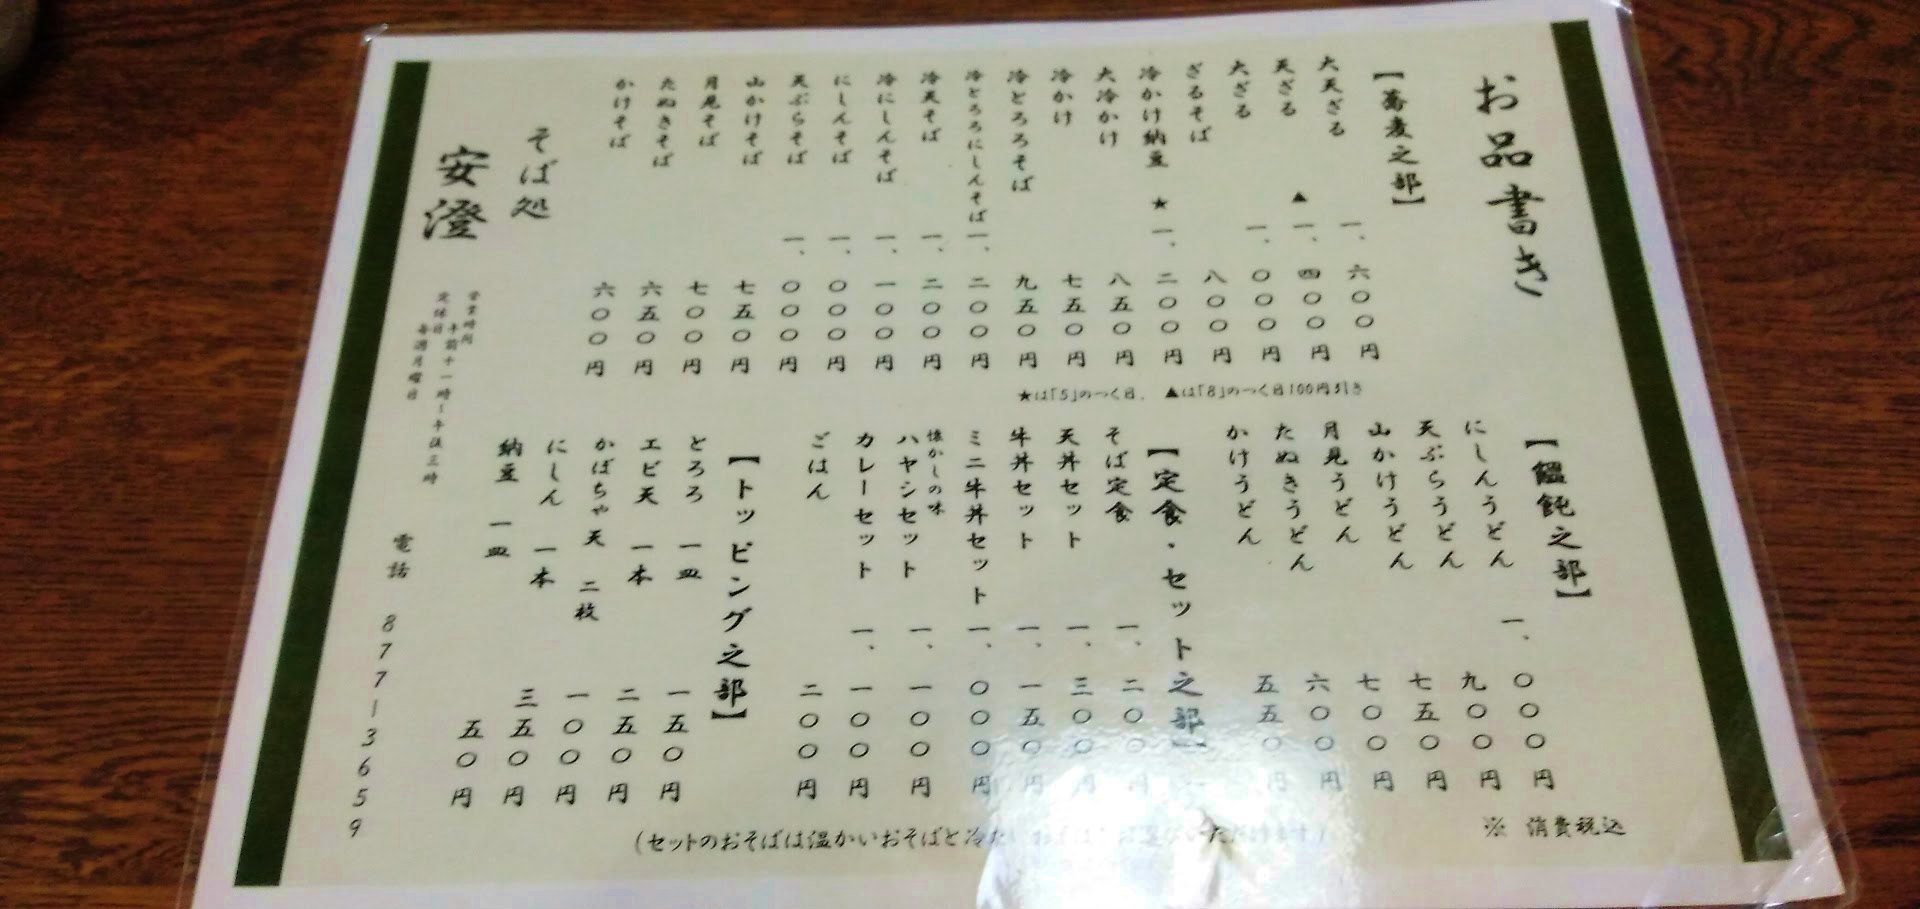 お品書き
【蕎麦之部】
大天ざる 一、六〇〇円
天ざる ▲一、四〇〇円
大ざる 一、〇〇〇円
ざるそば 八〇〇円
冷かけ納豆 ★一、二〇〇円
大冷かけ 八五〇円
冷かけ 七五〇円
冷とろろそば 九五〇円
冷とろろにしんそば 一、二〇〇円
冷天そば 一、二〇〇円
冷にしんそば 一、一〇〇円
にしんそば 一、〇〇〇円
天ぷらそば 一、〇〇〇円
山かけそば 七五〇円
月見そば 七〇〇円
たぬきそば 六五〇円
かけそば 六〇〇円
★は「5」のつく日、 ▲は「8」のつく日100円引き
【饂飩之部】
にしんうどん 一、〇〇〇円
天ぷらうどん 九〇〇円
山かけうどん 七五〇円
月見うどん 七〇〇円
たぬきうどん 六〇〇円
かけうどん 五五〇円
【定食・セット之部】
そば定食 一、二〇〇円
天丼セット 一、三〇〇円
牛丼セット 一、一五〇円
ミニ牛丼セット 一、〇〇〇円
懐かしの味
ハヤシセット 一、一〇〇円
カレーセット 一、一〇〇円
ごはん 二〇〇円
【トッピング之部】
とろろ 一皿 一五〇円
エビ天 一本 二五〇円
かぼちゃ天 二枚 一〇〇円
にしん 一本 三五〇円
納豆 一皿 五〇円
(セットのおそばは温かいおそばと冷た
※ 消費税込
そば処
安澄
営業時間
午前十一時〜午後三時
定休日
毎週月曜日
電話 877-3659